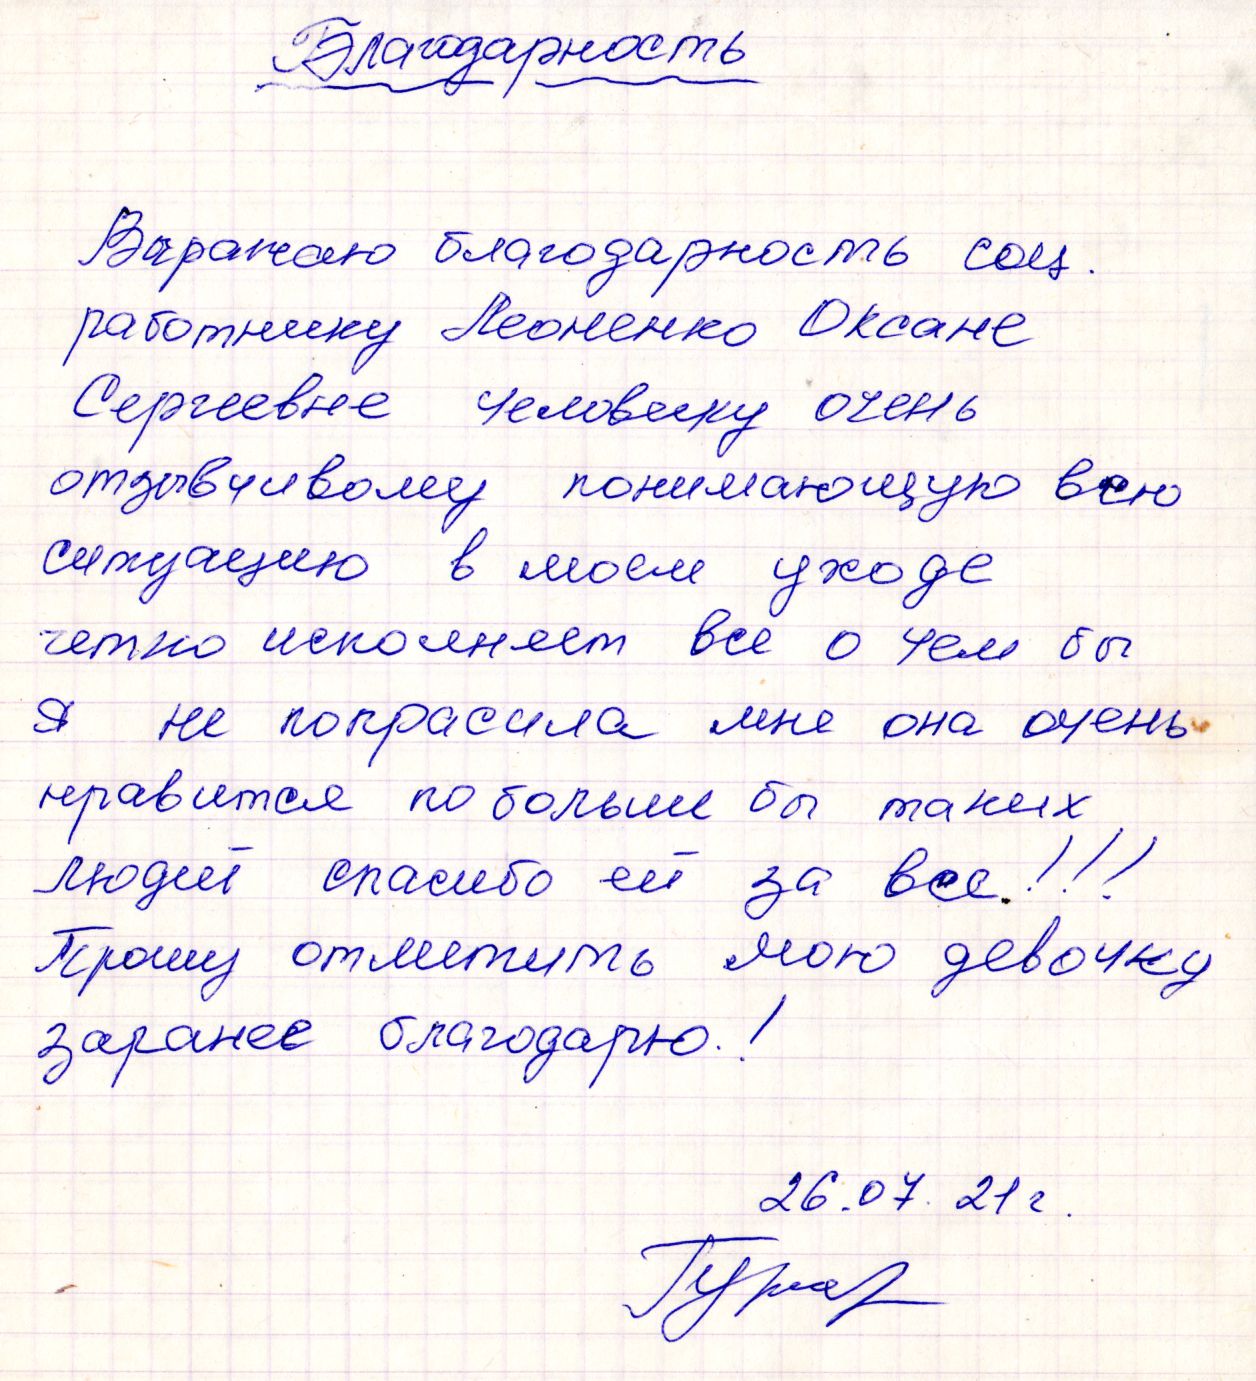 Благодарность
Выражаю благодарность соц.
работнику Леоненко Оксане
Сергиевне человеку очень
отзывчивому понимающую всю
ситуацию в моем уходе
четко исполняет все о чем бы
я не попрасила мне она очень
нравится по больши бы таких
людей спасибо ей за все.!!!
Прошу отметить мою девочку
заранее благодарю.!
26.07.21г.